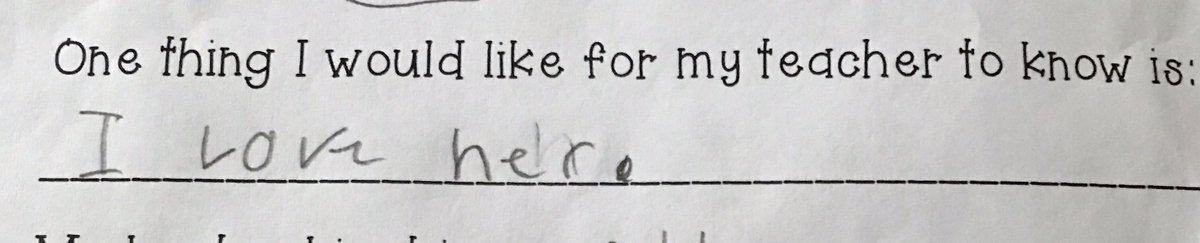 One thing I would like for my teacher to know is:
I love her.